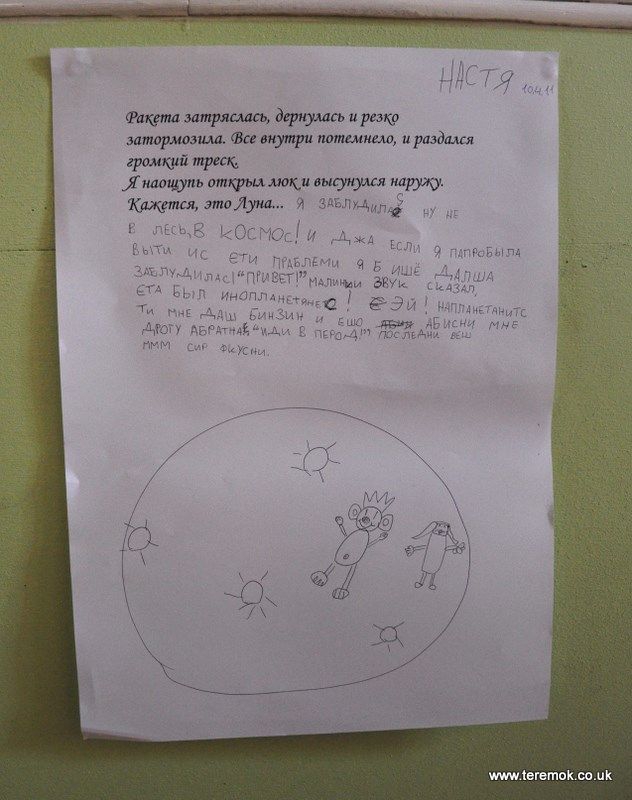 НАСТЯ 10.4.11
Ракета затряслась, дернулась и резко
затормозила. Все внутри потемнело, и раздался
громкий треск.
Я наощупь открыл люк и высунулся наружу.
Кажется, это Луна... Я ЗАБЛУДИЛАС НУ НЕ
В ЛЕСЬ, В КОСМОС! И ДЖА ЕСЛИ Я ПАПРОБЫЛА
ВЫТИ ИС ЕТИ ПРАБЛЕМИ Я Б ИШЁ ДАЛША
ЗАБЛУДИЛАС! "ПРИВЕТ!" МАЛИНКИ ЗВУК СКАЗАЛ,
ЕТА БЫЛ ИНОПЛАНЕТЯНЕС! ЭЙ! НАПЛАНЕТАНИТС
ТИ МНЕ ДАШ БИНЗИН И ЕШО АБИСНИ МНЕ
ДРОГУ АБРАТНАЕ "ИДИ В ПЕРОД!" ПОСЛЕДНИ ВЕШ
МММ СИР ФКУСНИ.
www.teremok.co.uk